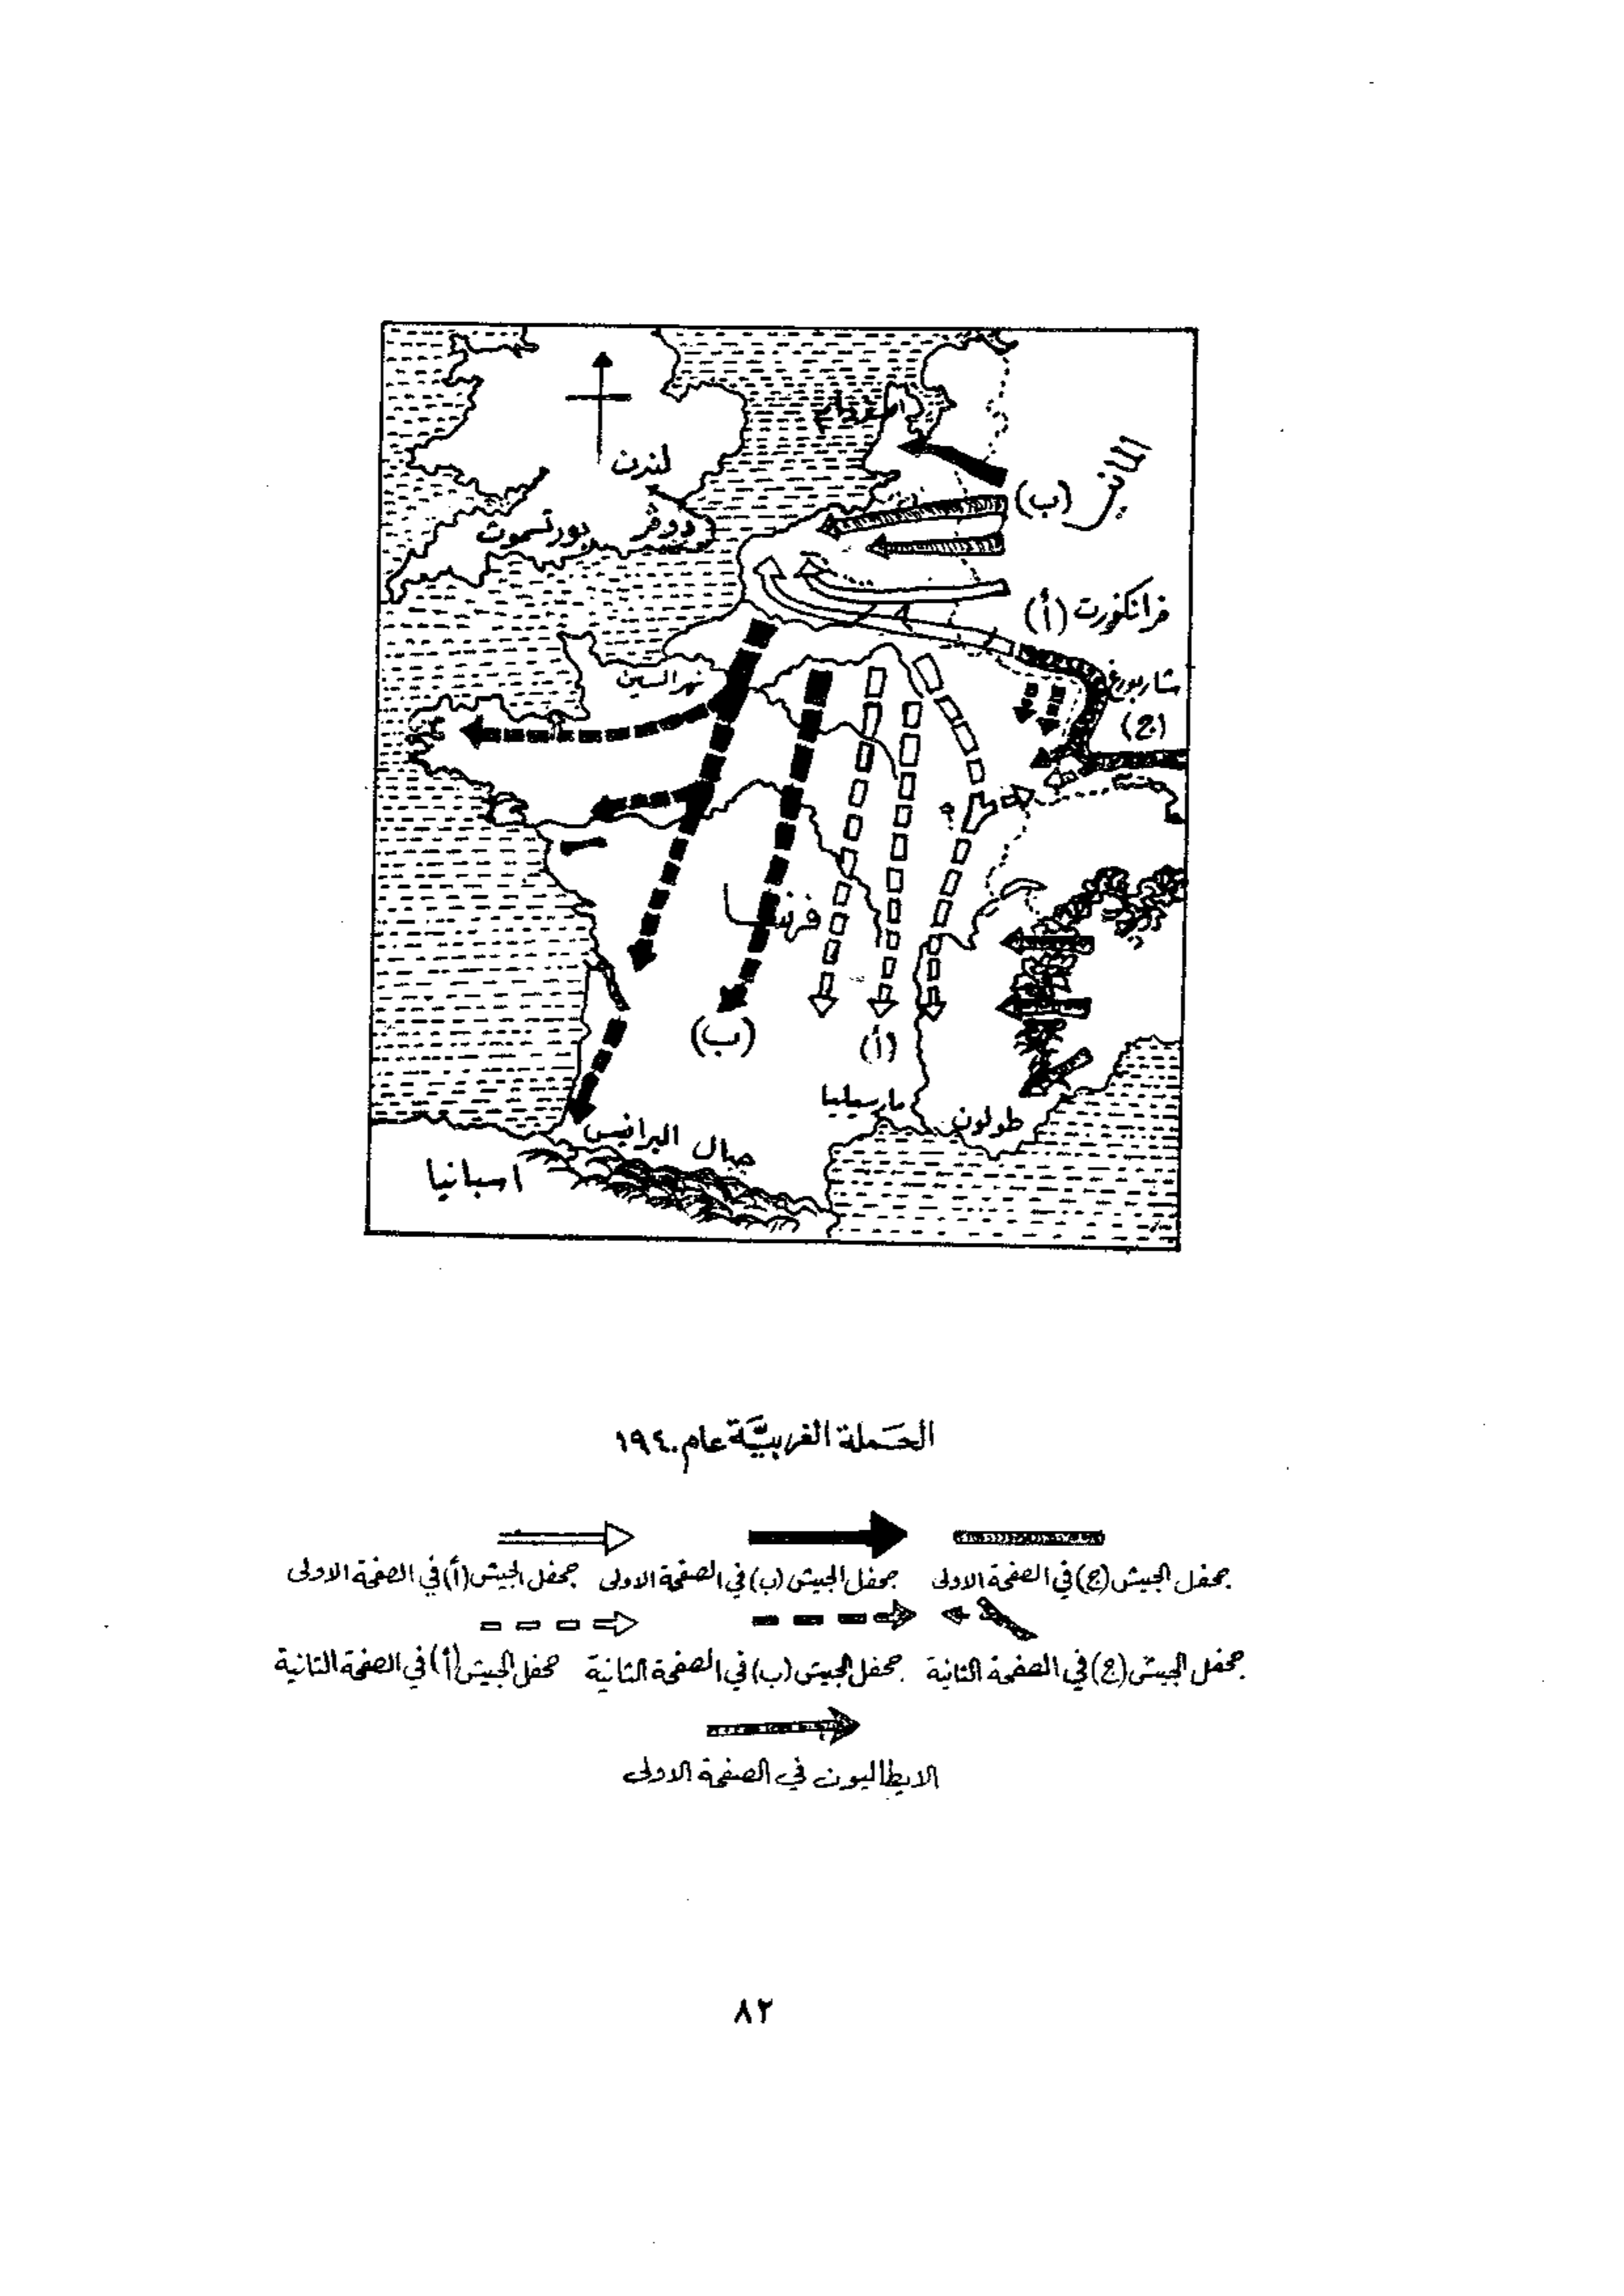 امستردام
لندن
(ب)
دوڤر
بورتسموث
فرانكفورت (أ)
نهر السين
(ج)
فرنسا
(ب)
(أ)
مارسيليا
طولون
جبال البرانيس
اسبانيا
الحَملة الغربيَّة عام ١٩٤٠
جحفل الجيش (ج) في الصفحة الاولى
جحفل الجيش (ب) في الصفحة الاولى
جحفل الجيش (أ) في الصفحة الاولى
جحفل الجيش (ج) في الصفحة الثانية
جحفل الجيش (ب) في الصفحة الثانية
جحفل الجيش (أ) في الصفحة الثانية
الايطاليون في الصفحة الاولى
٨٢